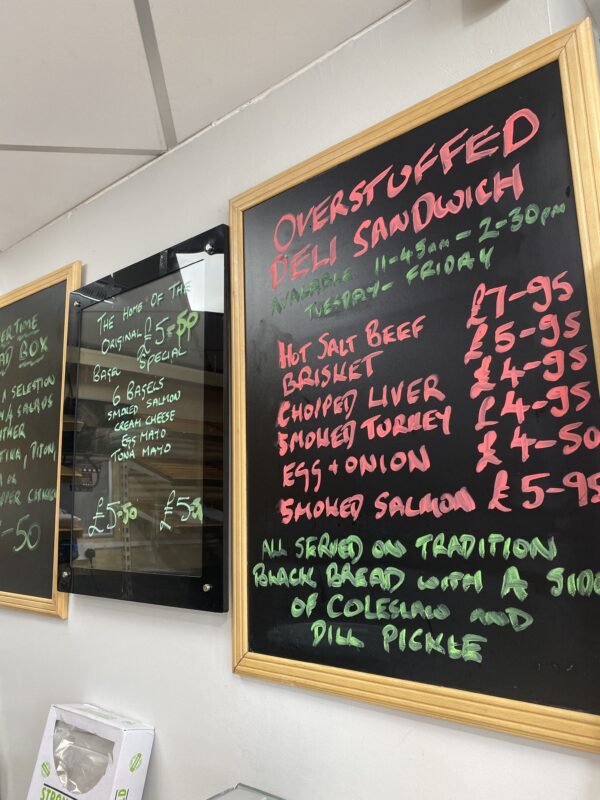 ER TIME
AD BOX
A SELECTION
4 SALADS
EITHER
, PITON,
OR
-50
THE HOME OF THE
ORIGINAL £5-50
BAGEL SPECIAL
6 BAGELS
SMOKED SALMON
CREAM CHEESE
EGG MAYO
TUNA MAYO
£5-50 £5-
OVERSTUFFED
DELI SANDWICH
AVAILABLE 11-45am - 2-30pm
TUESDAY - FRIDAY
HOT SALT BEEF £7-95
BRISKET £5-95
CHOPPED LIVER £4-95
SMOKED TURKEY £4-95
EGG + ONION £4-50
SMOKED SALMON £5-95
ALL SERVED ON TRADITION
BLACK BREAD WITH A SIDE
OF COLESLAW AND
DILL PICKLE
STRON